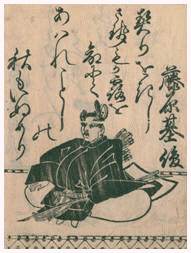 藤原基俊
契りをきし
させもか露を
命にて
あはれことしの
秋もいぬめり